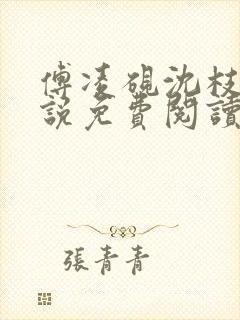 傅凌硯沈枝
說免費閱讀
張青青